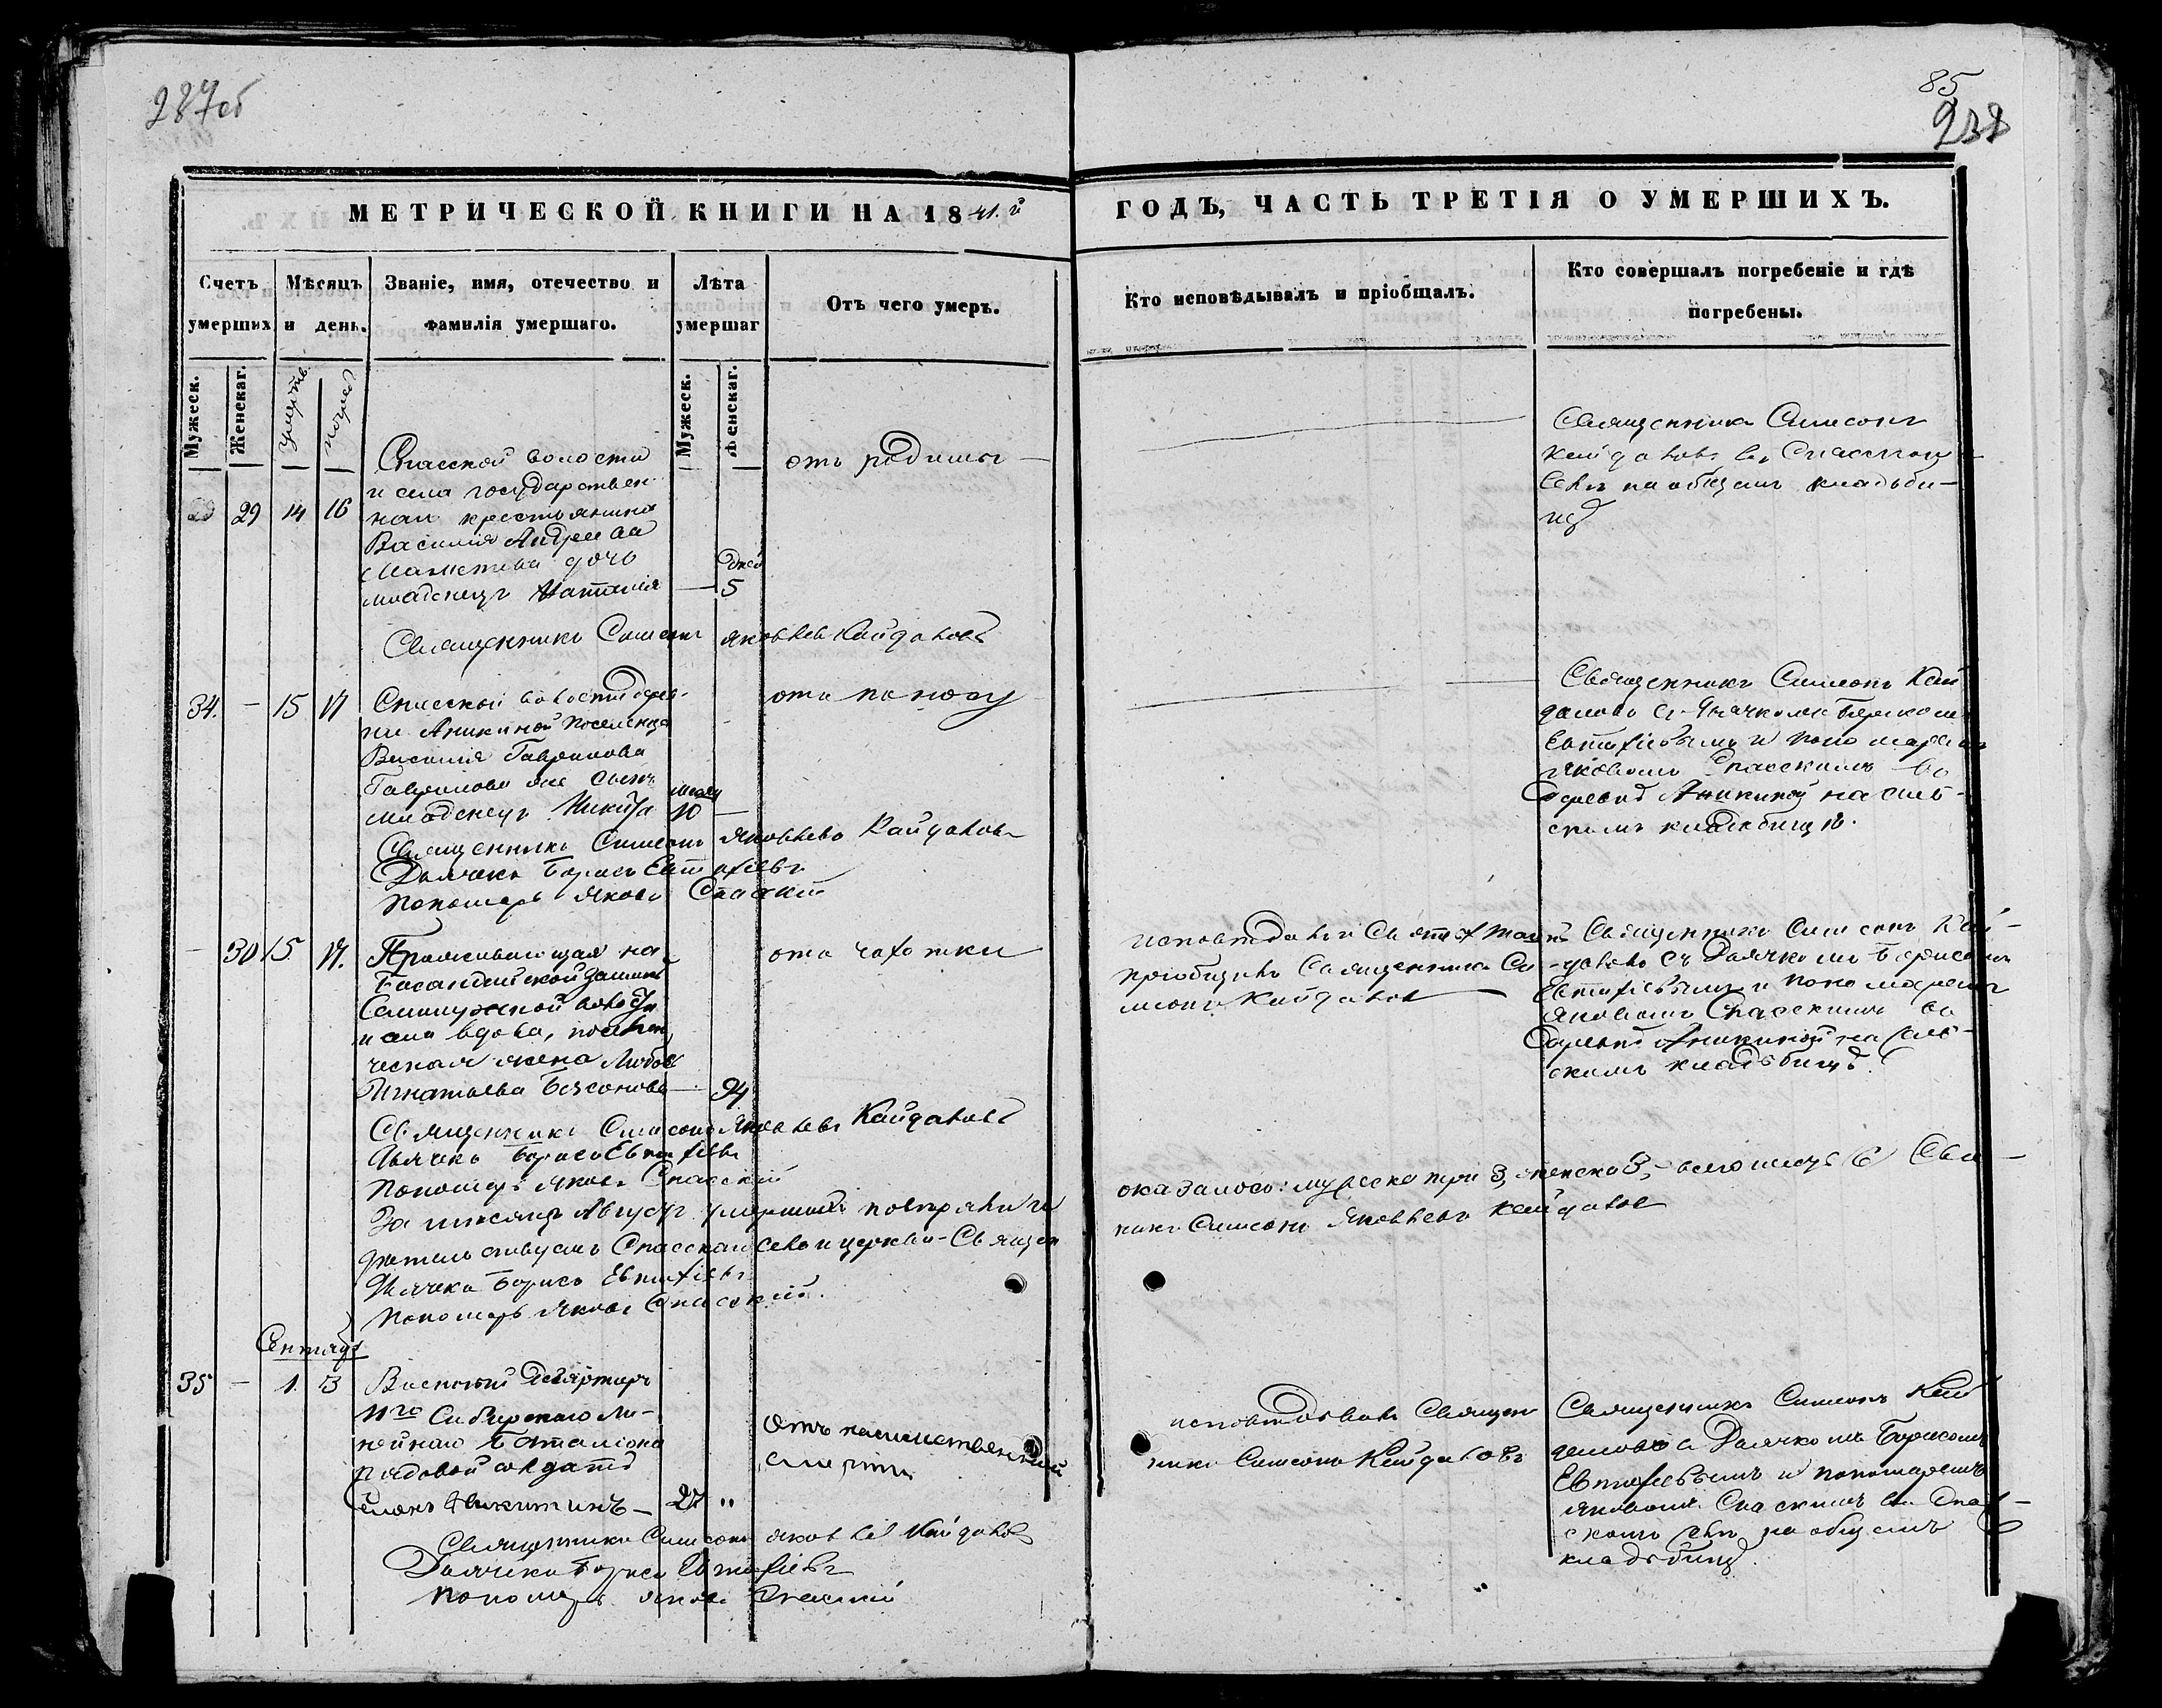 287об
85
238
МЕТРИЧЕСКОЙ КНИГИ НА 1841.й
ГОДЪ, ЧАСТЬ ТРЕТІЯ О УМЕРШИХЪ.
Счетъ умершихъ
Мѣсяцъ и день.
Званіе, имя, отечество и фамилія умершаго.
Лѣта умершаг
Отъ чего умеръ.
Кто исповѣдывалъ и пріобщалъ.
Кто совершалъ погребеніе и гдѣ погребены.
Мужеск.
Женскаг.
Мужеск.
Женскаг.
29 14 16
Спасской волости
и села государствен
наго крестьянина
Василія Андреева
дочь
младенецъ Наталія
дней
5
отъ родимца
Священникъ Симеонъ
Кайдаловъ въ Спасскомъ
селѣ на общемъ кладби-
щѣ
Священникъ Симеонъ Яковлевъ Кайдаловъ
34. - 15 17
Спасской волости дерев-
ни Аникиной поселенца
Василія Гаврилова
Гаврилова же сынъ
младенецъ Никита
10
отъ поносу
Священникъ Симеонъ Кай
даловъ съ дьячкомъ Борисомъ
Евтифіевымъ и пономаремъ
Яковомъ Спасскимъ въ
деревнѣ Аникиной на сель-
скомъ кладбищѣ.
Священникъ Симеонъ Яковлевъ Кайдаловъ
Дьячекъ Борисъ Евтифіевъ
Пономарь Яковъ Спасскій
- 30 15 17.
Проживающая на
Басандайской заимкѣ
Семилужной волости
и села вдова, поселен
ческая жена Любовь
Игнатьева
94
отъ чахотки
исповѣдалъ и Св. Таинъ
пріобщилъ Священникъ Си-
меонъ Кайдаловъ
Священникъ Симеонъ Кай-
даловъ съ Дьячкомъ Борисомъ
Евтифіевымъ и пономаремъ
Яковомъ Спасскимъ въ
деревнѣ Аникиной на сель-
скомъ кладбищѣ.
Священникъ Симеонъ Яковлевъ Кайдаловъ
Дьячекъ Борисъ Евтифіевъ
Пономарь Яковъ Спасскій
За мѣсяцъ Августъ умершихъ
Спасской села церкви - Священ
оказалось: мужеска три 3, женска 3, - всего шесть (6) Свя-
никъ Симеонъ Яковлевъ Кайдаловъ
Дьячекъ Борисъ Евтифіевъ
Пономарь Яковъ Спасскій.
Сентябрь
35 - 1. 3
Сибирскаго Ли-
нейнаго Баталіона
рядовой солдатъ
Никитинъ -
27 "
Отъ насильственной
смерти
исповѣдывалъ Священ
никъ Симеонъ Кайдаловъ
Священникъ Симеонъ Кай
даловъ съ Дьячкомъ Борисомъ
Евтифіевымъ и пономаремъ
Яковомъ Спасскимъ въ Спас-
скомъ селѣ на общемъ
кладбищѣ.
Священникъ Симеонъ Яковлевъ Кайдаловъ
Дьячекъ Борисъ Евтифіевъ
Пономарь Яковъ Спасскій